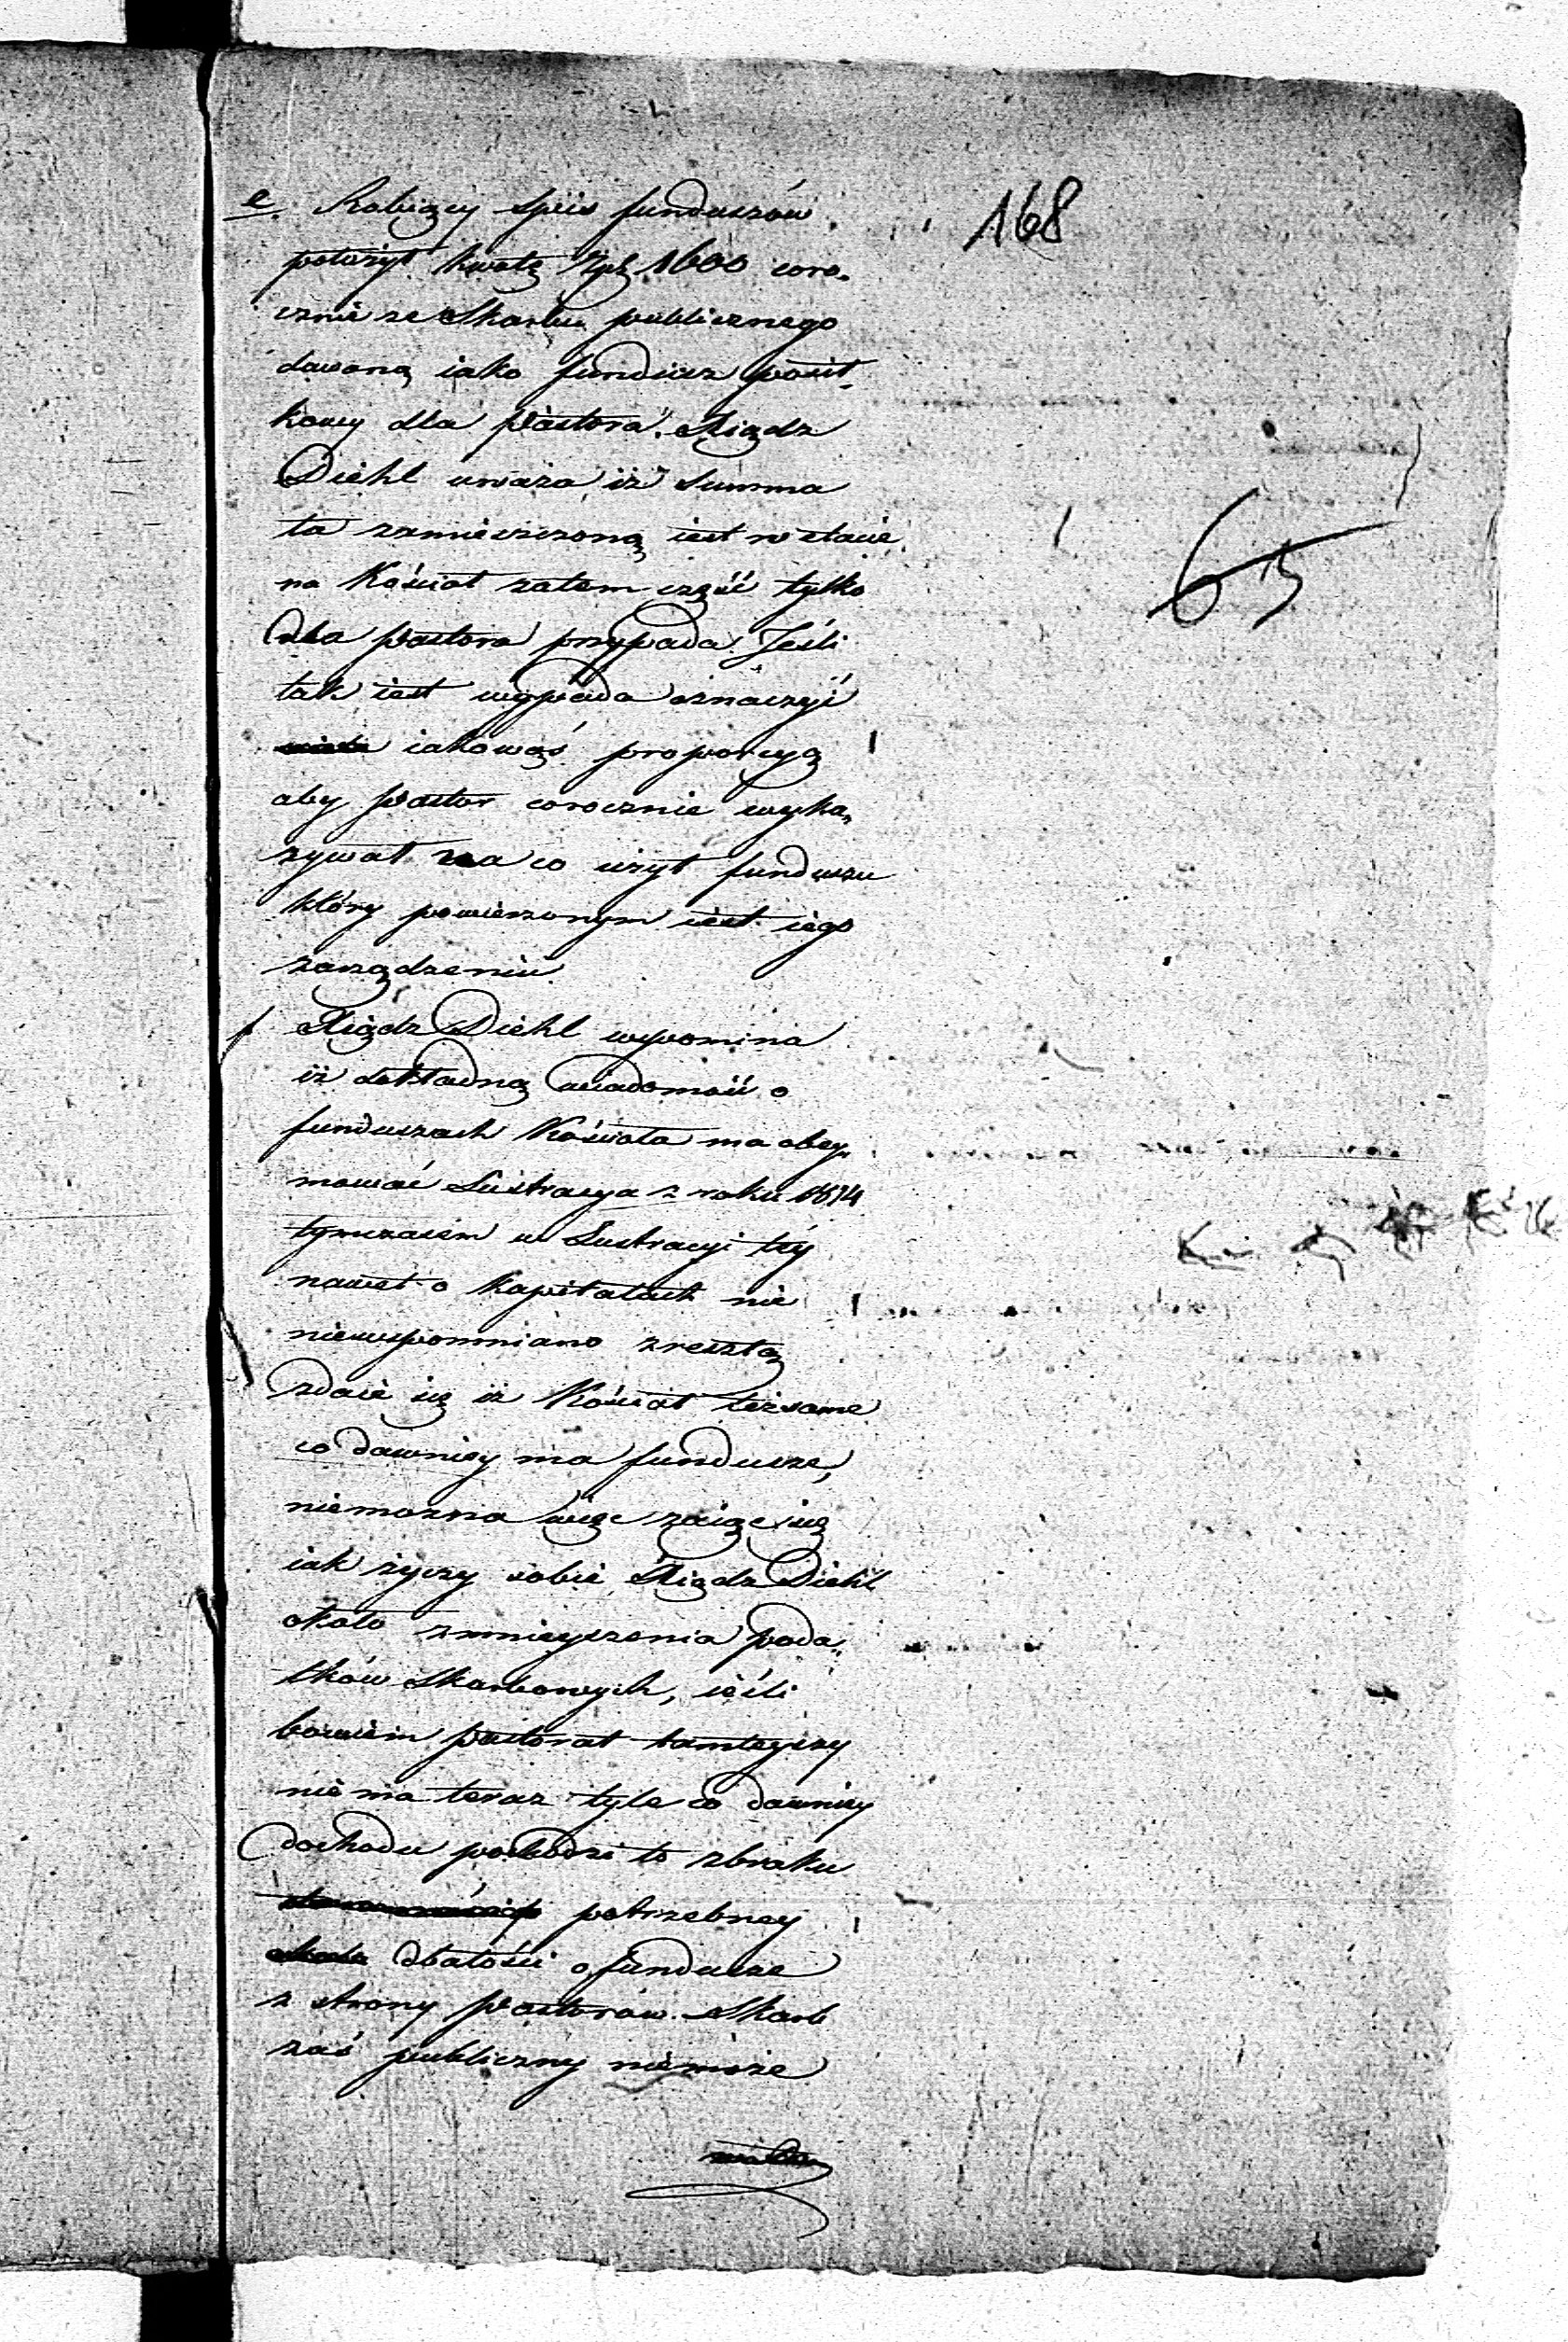 168
65
e. Robiący spis funduszów
położył kwotę Zpł. 1600 coro„
cznie ze Skarbu publicznego
dawaną iako fundusz posił„
kowy dla Pastora. Xiądz
Diehl uważa iż Summa
ta zamieszczoną iest w etacie
na Kościoł zatem część tylko
dla Pastora przypada. Jeśli
tak iest wypada oznaczyć
iakowąś proporcyą
aby Pastor corocznie wyka„
zywał na co użył funduszu
który powierzonym iest iego
zarządzeniu
f Xiądz Diehl wspomina
iż dokładną wiadomość o
funduszach Kościoła ma obey„
mować Lustracya z roku 1814
tymczasem w Lustracyi tey
nawet o kapitałach nie
niewspomniano zresztą
zdaie się iż Kościoł też same
co dawniey ma fundusze,
niemożna więc zaiąc się
iak życzy sobie Xiądz Diehl
około zmnieyszenia poda„
tków Skarbowych, ieśli
bowiem pastorat tamteyszy
nie ma teraz tyle co dawniey
dochodu pochodzi to z braku
potrzebney
dbałości o fundusze
z strony Pastorów. Skarb
zaś publiczny niemoże